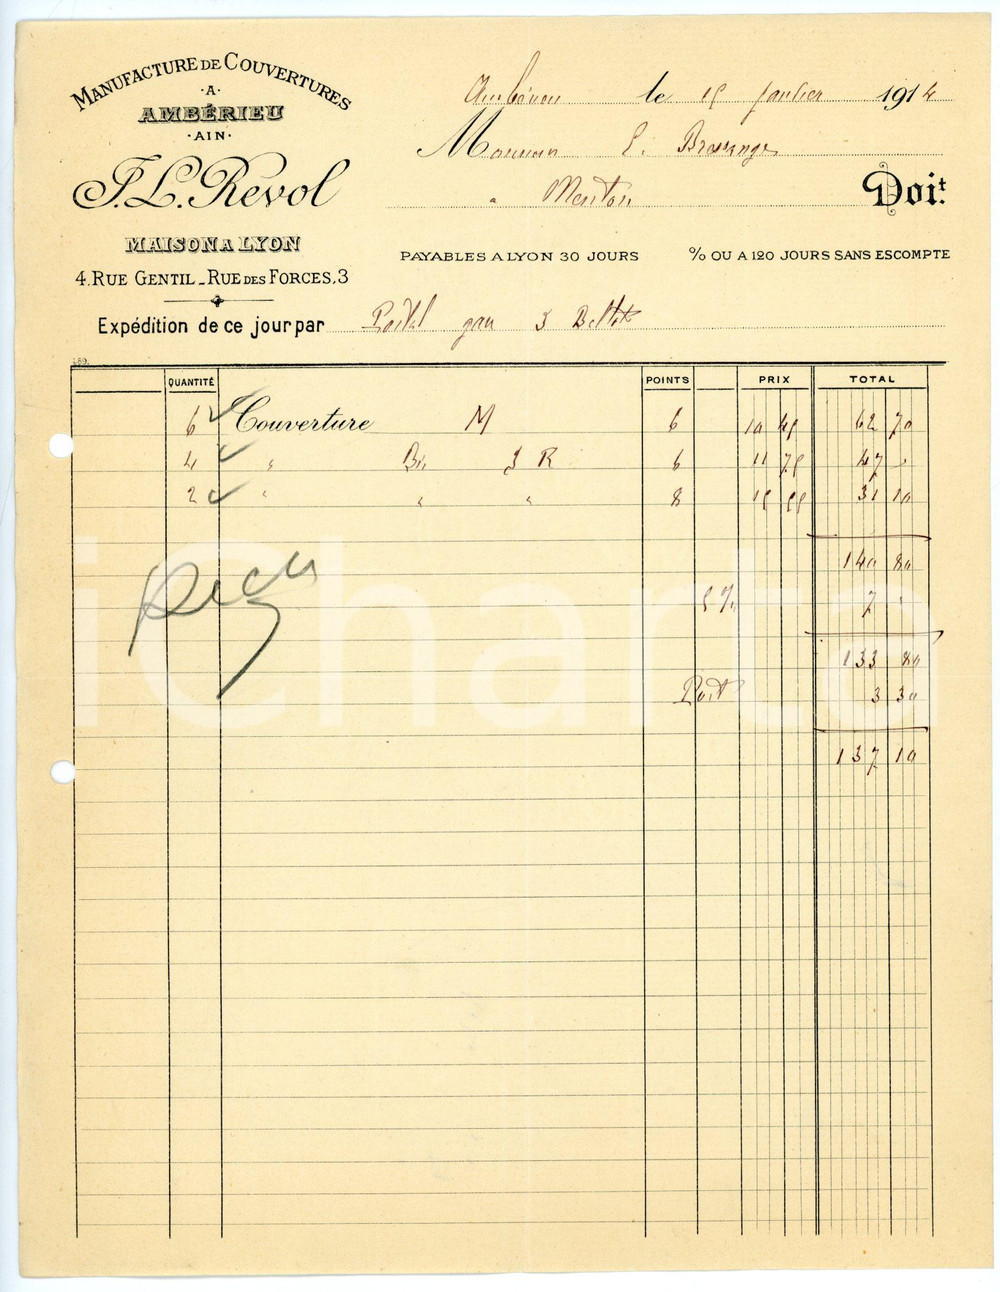 MANUFACTURE DE COUVERTURES
·A·
AMBÉRIEU
·AIN·
J.L. Revol
MAISON A LYON
4, RUE GENTIL _ RUE DES FORCES, 3
Ambérieu le 15 Janvier 1914
Monsieur E.
a Menton Doit.
PAYABLES A LYON 30 JOURS % OU A 120 JOURS SANS ESCOMPTE
Expédition de ce jour par Postal 3
189.
QUANTITÉ POINTS PRIX TOTAL
6 Couverture M 6 10 45 62 70
4 " 3 R 6 11 75 47 "
2 " " " 8 15 55 31 10
140 80
5 % 7 "
133 80
Port 3 30
137 10
iCharta